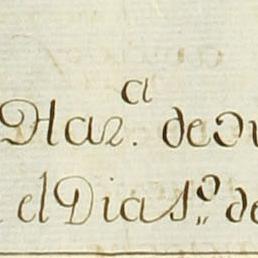 Haz.ª de
el Dia 1.º de